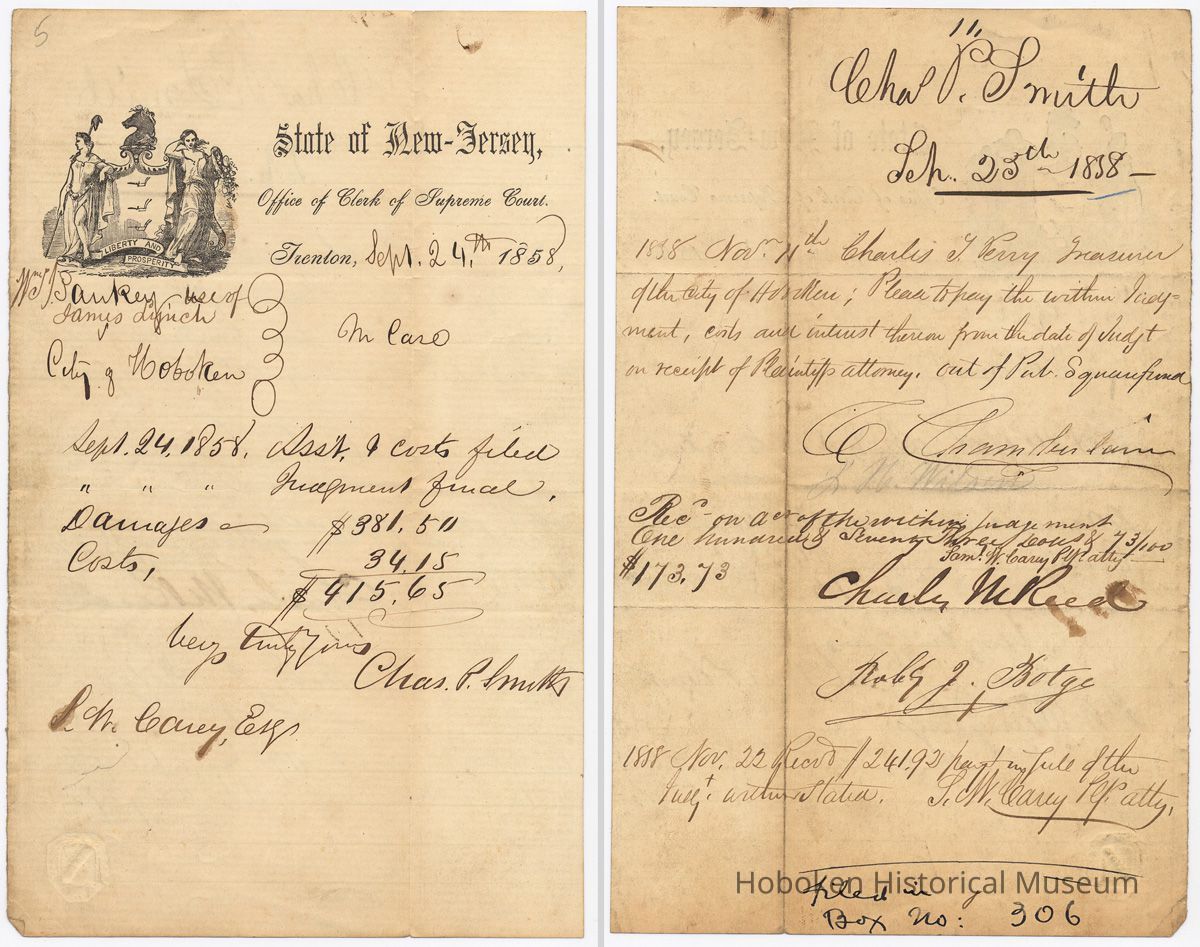 5
State of New-Jersey,
Office of Clerk of Supreme Court.
LIBERTY AND
PROSPERITY
Trenton, Sept. 24th 1858,
Sankey use of
James Lynch
In Case
City of Hoboken
Sept. 24, 1858, Asst. & costs filed
" " " Judgment final,
Damages $381.50
Costs, 34.15
$415.65
Very truly yours
Chas. P. Smith
S. W. Carey, Esq.
11,
Chas P. Smith
23th 1858
1858 Nov. 11th Charles T. Perry Treasurer
of the City of Hoboken; Please to pay the within Judg-
ment, costs and interest thereon from the date of Judgt
on receipt of Plaintiffs attorney. out of Pub. Square fund
C Chamberlain
J. H. Wilson
Recd on act of the within judgement
One hundred & Seventy Three Dolls & 73/100
Saml. W. Carey Plff atty
$173.73
Charles M Reed
Robt J.
1858 Nov. 22 Recvd $241.92 payt in full of the
Judgt within stated. S. W. Carey Plff atty,
Filed in
Box No: 306
Hoboken Historical Museum